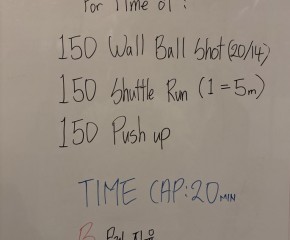 For Time of :
150 Wall Ball Shot (20/14)
150 Shuttle Run (1=5m)
150 Push up
TIME CAP:20 MIN
B